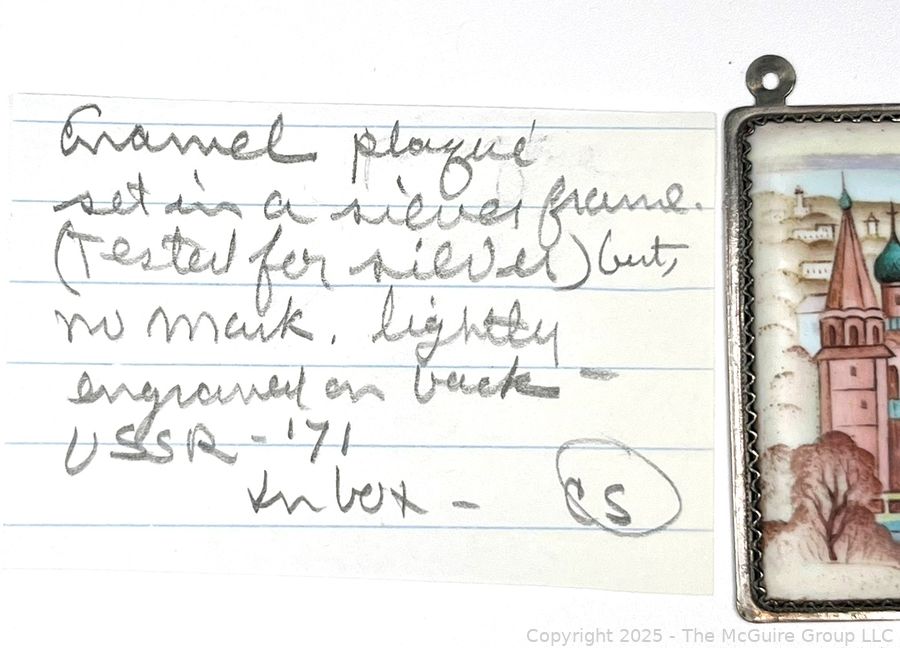 Enamel plaque
set in a silver frame.
(Tested for silver) but,
no mark. lightly
engraved on back -
USSR - '71
In box - CS
Copyright 2025 - The McGuire Group LLC